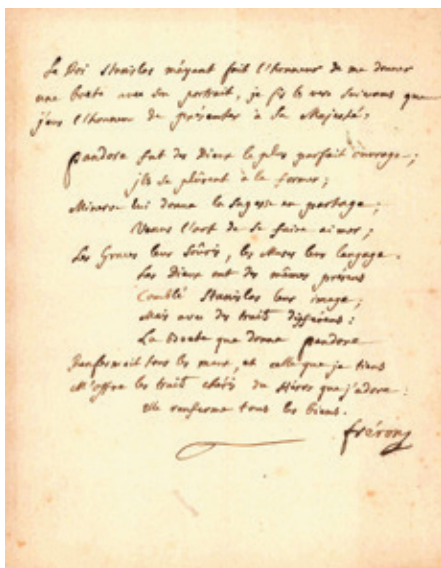 Le Roi Stanislas m'ayant fait l'honneur de me donner
une boete avec son portrait, je fis les vers suivans que
j'eus l'honneur de présenter à Sa Majesté,
Pandore fut des Dieux le plus parfait ouvrage ;
ils se plûrent à la former ;
Minerve lui donna la sagesse en partage ;
Venus l'art de se faire aimer ;
Les Graces leur soûris, les Muses leur langage.
Les Dieux ont des mêmes présens
Comblé Stanislas leur image ;
Mais avec des traits différens :
La Boete que donna Pandore
Renfermait tous les maux, et celle que je tiens
M'offre les traits chéris du Héros que j'adore :
elle renferme tous les biens.
fréron